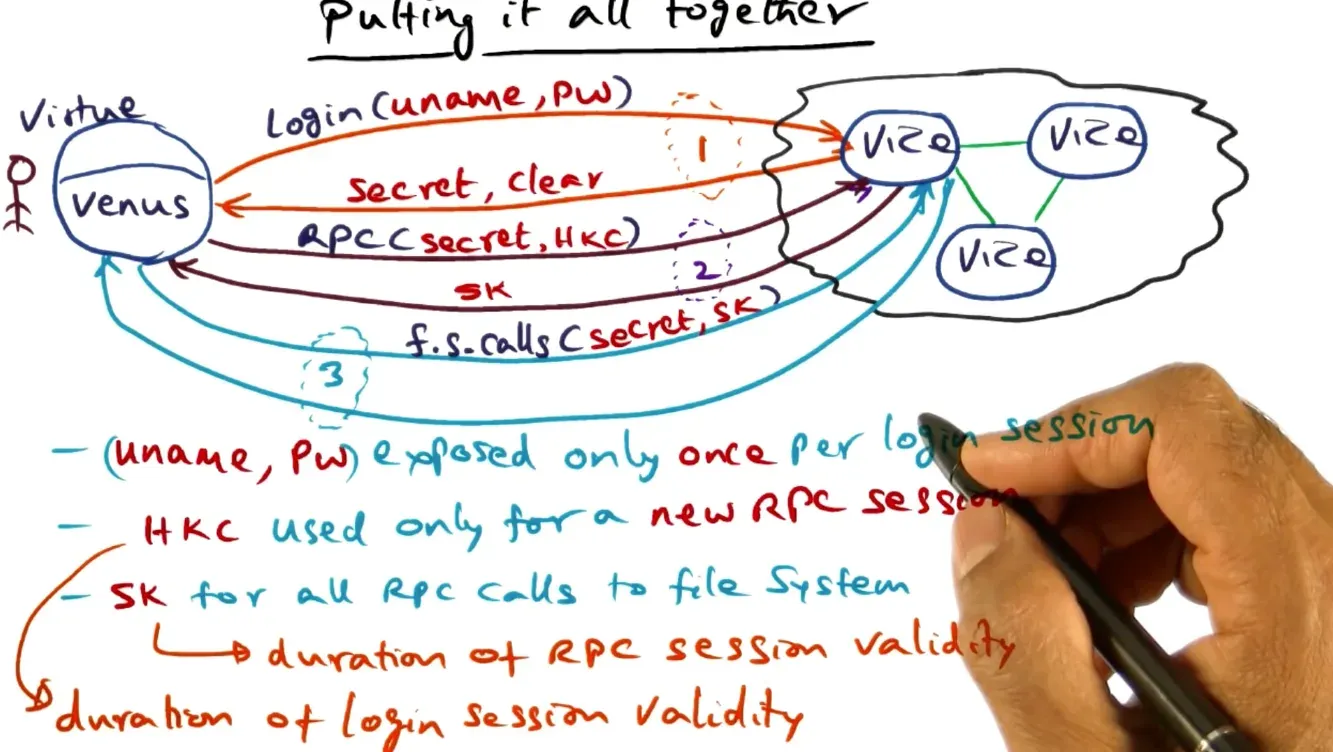 Putting it all together
Virtue
Login(uname, PW)
1
Vice
Vice
secret, clear
venus
RPC(secret, HKC)
2
Vice
SK
f.s.calls(secret, SK)
3
- (uname, PW) exposed only once per login session
- HKC used only for a new RPC session
- SK for all RPC calls to file System
duration of RPC session validity
duration of login session validity